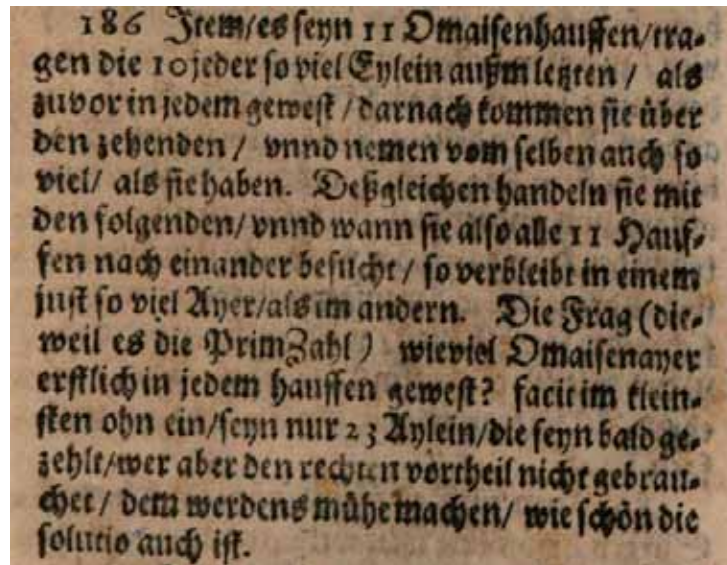 186 Jtem/es seyn 11 Omaisenhauffen/tra-
gen die 10 jeder so viel Eylein außm letzten / als
zuvor in jedem gewest / darnach kommen sie über
den zehenden / vnnd nemen vom selben auch so
viel/ als sie haben. Deßgleichen handeln sie mit
den folgenden/ vnnd wann sie also alle 11 Hauf-
fen nach einander besucht / so verbleibt in einem
just so viel Ayer/als im andern. Die Frag (die-
weil es die PrimZahl) wieviel Omaisenayer
erstlich in jedem hauffen gewest? facit im klein-
sten ohn ein/seyn nur 23 Aylein/die seyn bald ge-
zehlt/wer aber den rechten vortheil nicht gebrau-
chet / dem werdens mühe machen/ wie schön die
solutio auch ist.